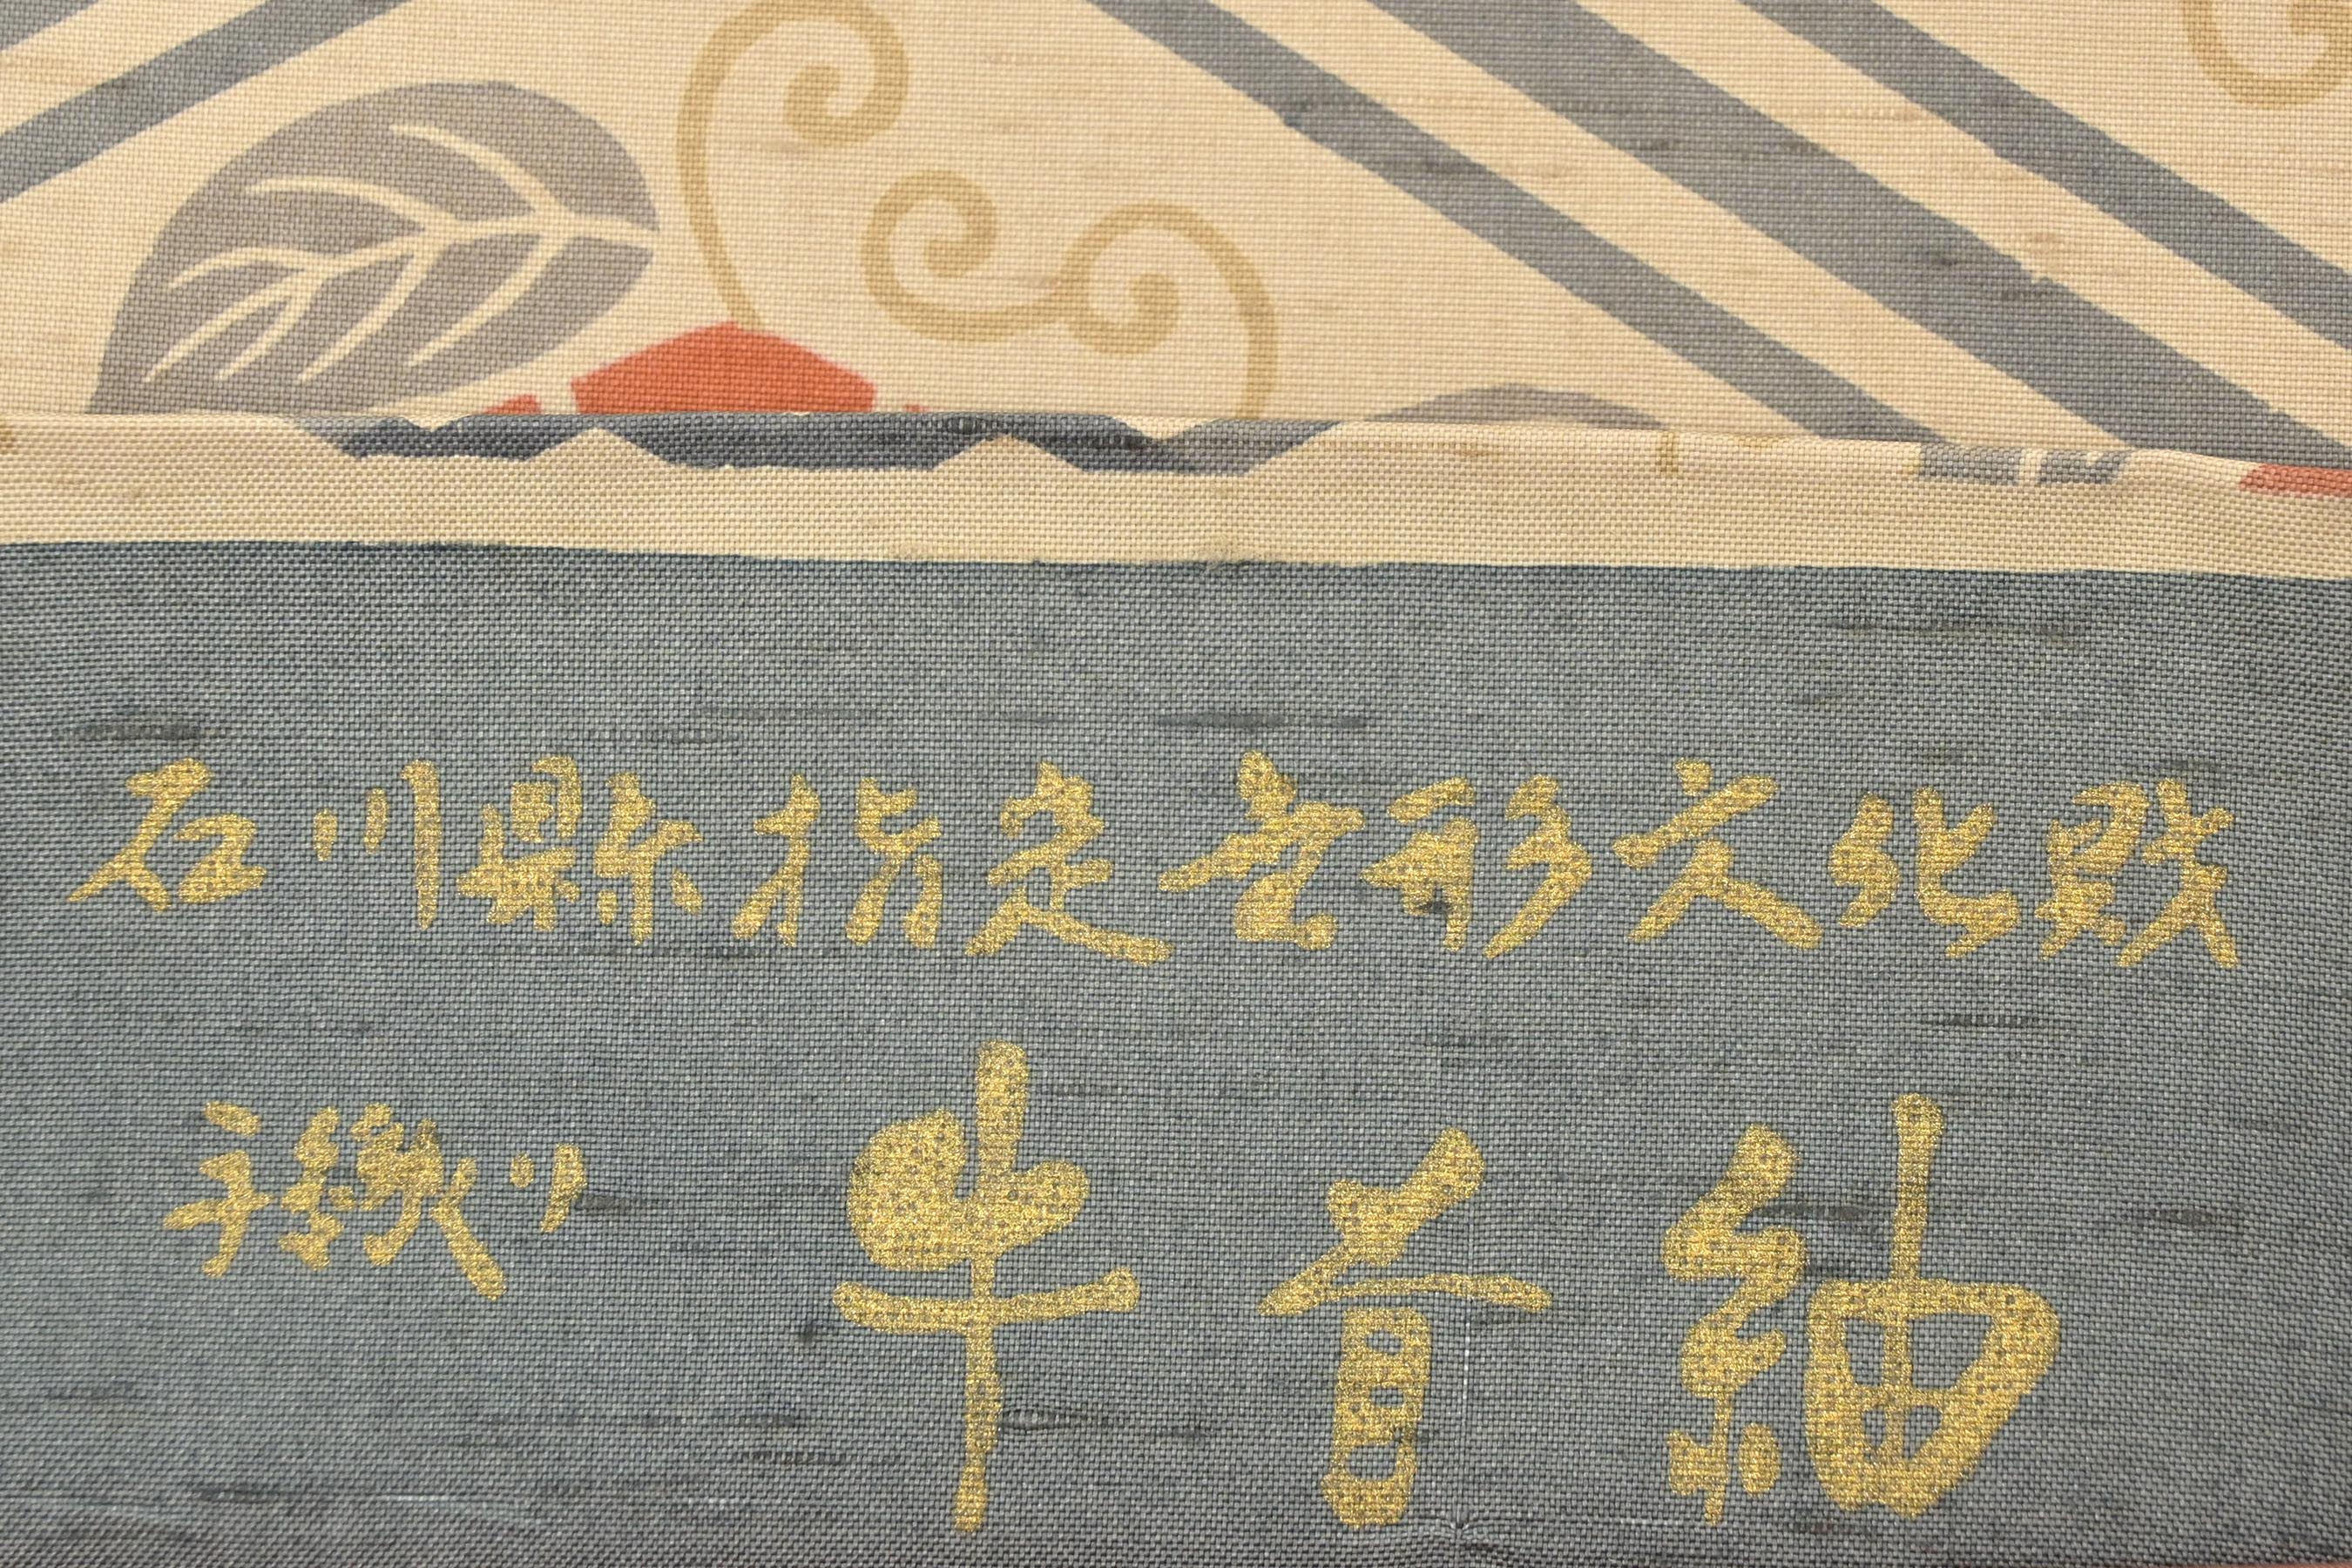 石川縣指定無形文化財
機り 牛首紬